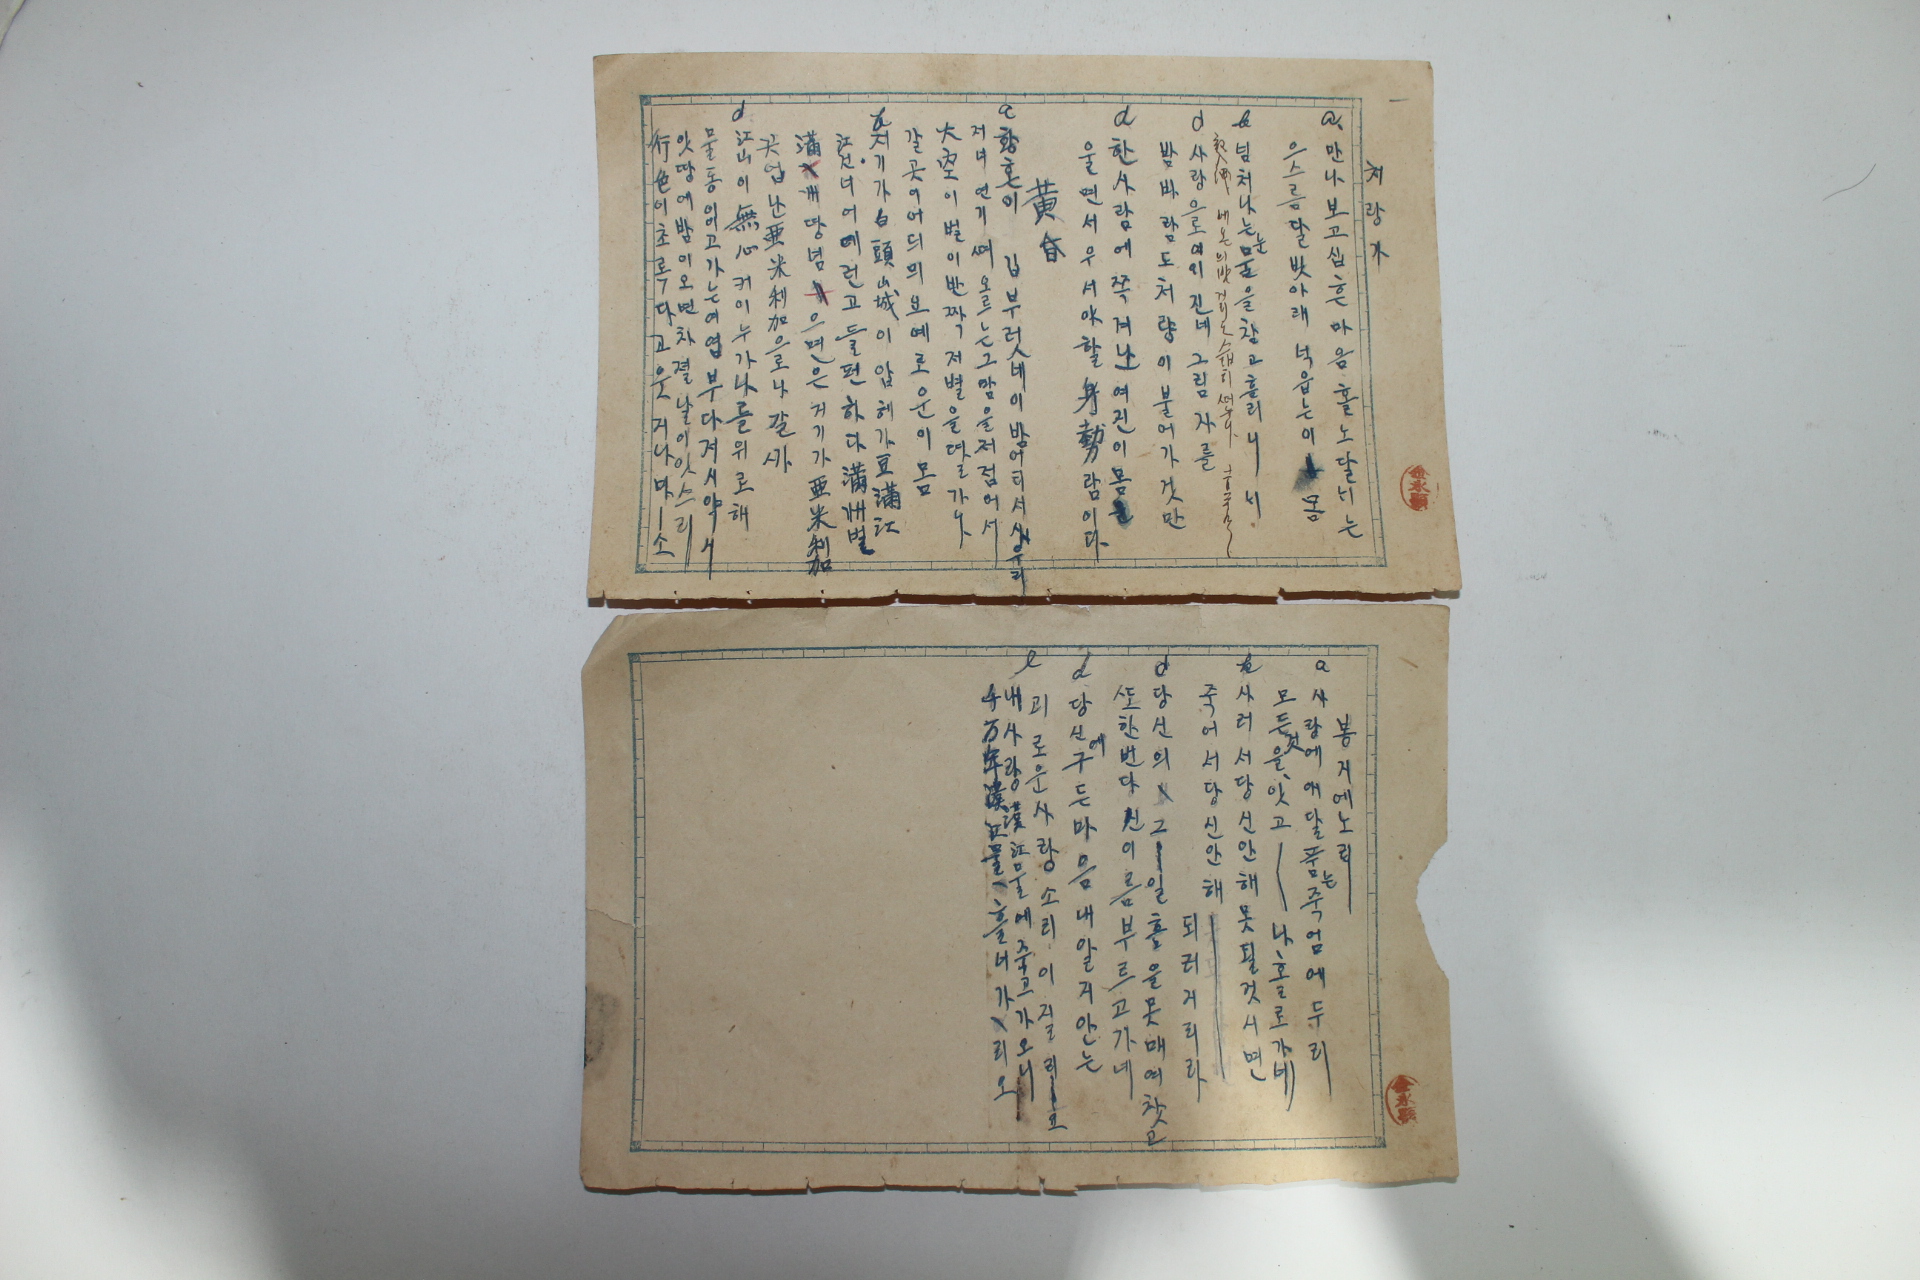 처량가
a 만나보고십흔마음홀노달내는
으스름달밧아래넉읍는이몸
b 넘처나는눈물을참고흘리니
d 사랑으로여위진네그림자를
밤바람도처량이불어가것만
d 한사람에쫓겨난여진이몸을
울면서우서야할身勢람이다
黃昏
a 황혼이 깁부럿네이밤어듸서새우리
저녁연기떠오르는그맘을저점어서
大空이별이반짝저별을따르가나
갈곳이어듸믜보예로운이몸
b 저기가白頭山城이압헤가豆滿江
江건너여메런고들편하다滿洲벌
滿洲땅넘으면은거기가亞米利加
곳업난亞米利加으로나갈까
d 江山이無心커이누가나를위로해
물동이이고가는여엽부다저시악시
앗땅에밤이오면차젤날이잇스리
行色이초루다고웃거나마ー소
봉지에노래
a 사랑에애달품는죽엄에두리
모든것을잇고 나홀로가네
b 사러서당신안해못될것시면
죽어서당신안해 되리거리라
d 당신의그ー일홈을못매여찻고
또한번다신이름부르고가네
d 당신에구든마음내알지안는
e 괴로운사랑소리이질리ー요
내사랑漢江물에죽고가오니
千万年漢江물흘너가리오
金永顯
金永顯